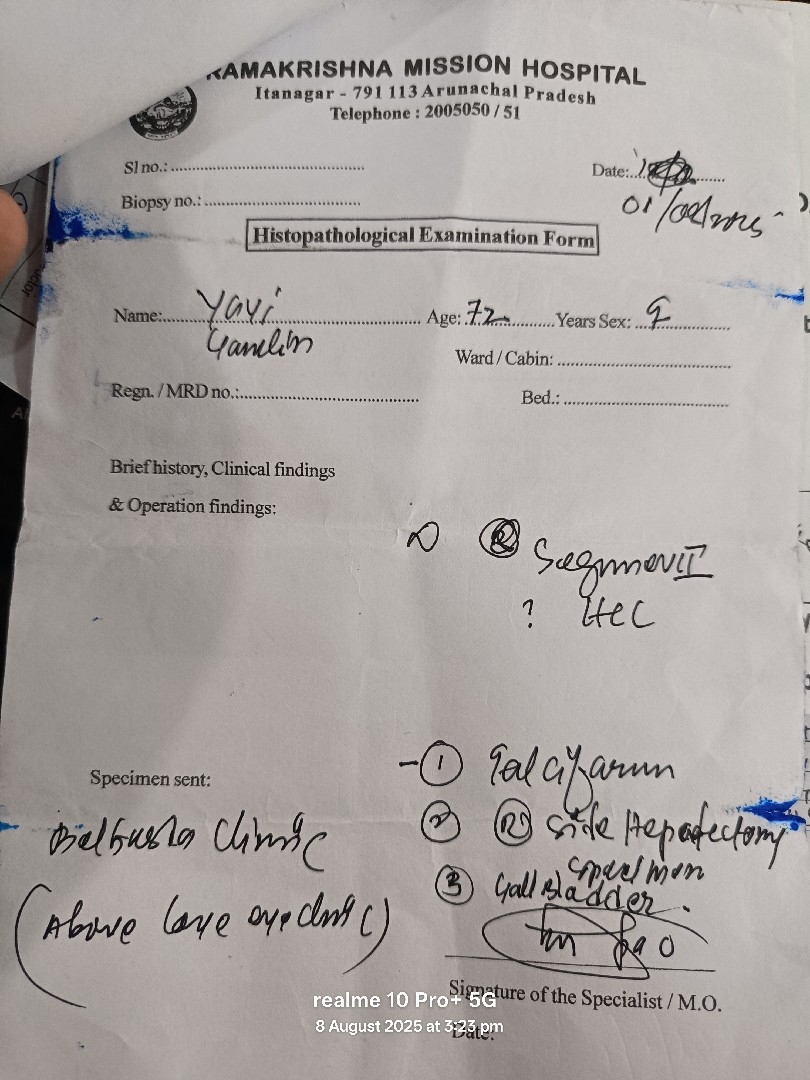 RAMAKRISHNA MISSION HOSPITAL
Itanagar - 791 113 Arunachal Pradesh
Telephone : 2005050 / 51
Sl no.:
Date:
Biopsy no.:
Histopathological Examination Form
Name: Yayi
Age: 72 Years Sex: ♀
Ward / Cabin:
Regn. / MRD no.:
Bed.:
Brief history, Clinical findings
& Operation findings:
? HCC
Specimen sent:
①
② Ⓡ side Hepatectomy
③ Gall Bladder.
Clinic
(Above eye clinic)
Signature of the Specialist / M.O.
Date:
realme 10 Pro+ 5G
8 August 2025 at 3:23 pm